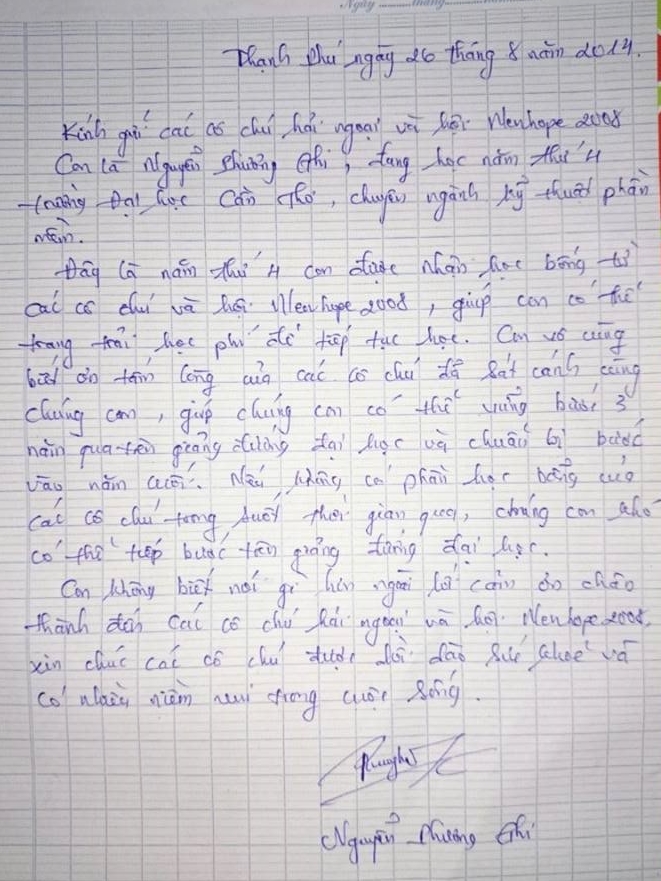 Ngày ......... tháng
Thạnh Phú ngày 26 tháng 8 năm 2014.
Kính gửi các cô chú hải ngoại và hội Newhope 2008
Con là Nguyễn Phương Thi, đang học năm thứ 4
trường Đại học Cần Thơ, chuyên ngành kỹ thuật phần
mềm.
Đây là năm thứ 4 con được nhận học bổng từ
các cô chú và hội Newhope 2008, giúp con có thể
trang trải học phí để tiếp tục học. Con vô cùng
biết ơn tấm lòng của các cô chú đã sát cánh cùng
chúng con, giúp chúng con có thể vững bước 3
năm qua trên giảng đường đại học và chuẩn bị bước
vào năm cuối. Nếu không có phần học bổng của
các cô chú trong suốt thời gian qua, chúng con khó
có thể tiếp bước trên giảng đường đại học.
Con không biết nói gì hơn ngoài lời cảm ơn chân
thành đến các cô chú hải ngoại và hội Newhope 2008,
xin chúc các cô chú được dồi dào sức khoẻ và
có nhiều niềm vui trong cuộc sống.
Nguyễn Phương Thi